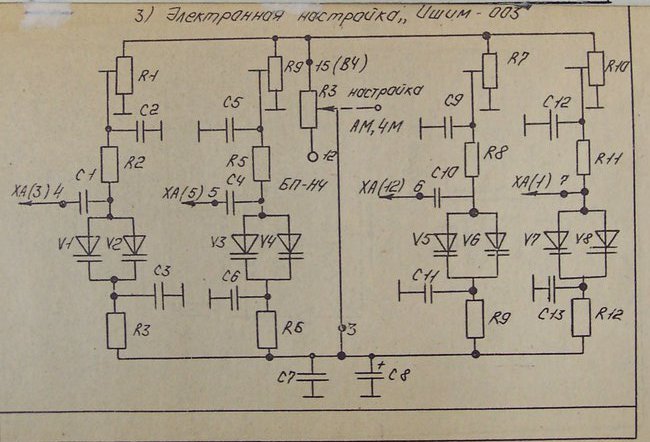 3) Электранная настройка „Ишим-003
R1
R9
15(В4)
R7
R10
R3 настройка
C2
C5
C9
C12
АМ, ЧМ
R2
R5
12
R8
R11
БП-Н4
C1
C4
C10
ХА(3) 4
ХА(5) 5
ХА(12) 6
ХА(1) 7
V1
V2
V3
V4
V5
V6
V7
V8
C3
C6
C11
C13
R3
R6
3
R9
R12
C7
+
C8